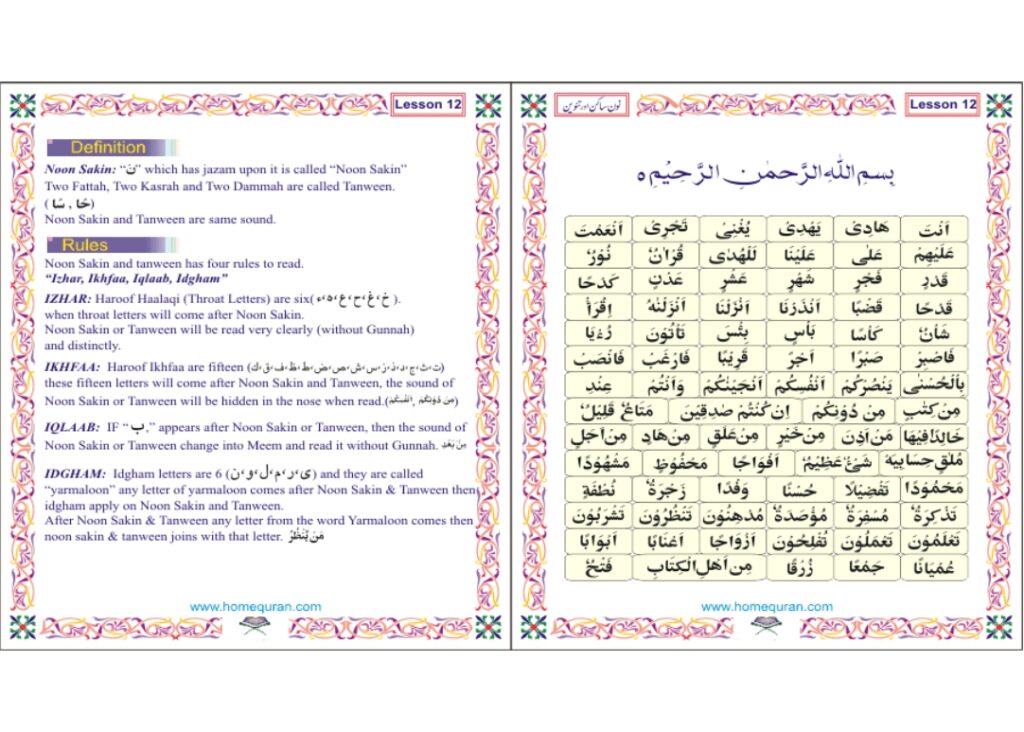 Lesson 12
Definition
Noon Sakin: “نْ” which has jazam upon it is called “Noon Sakin”
Two Fattah, Two Kasrah and Two Dammah are called Tanween.
( حًا , سًا )
Noon Sakin and Tanween are same sound.
Rules
Noon Sakin and tanween has four rules to read.
“Izhar, Ikhfaa, Iqlaab, Idgham”
IZHAR: Haroof Haalaqi (Throat Letters) are six( خ،غ،ح،ع،ہ،ء ).
when throat letters will come after Noon Sakin.
Noon Sakin or Tanween will be read very clearly (without Gunnah)
and distinctly.
IKHFAA: Haroof Ikhfaa are fifteen (ت،ث،ج،د،ذ،ز،س،ش،ص،ض،ط،ظ،ف،ق،ك)
these fifteen letters will come after Noon Sakin and Tanween, the sound of
Noon Sakin or Tanween will be hidden in the nose when read.(مِنْ دُوْنِكُمْ, اَنْفُسِكُمْ)
IQLAAB: IF “ب,” appears after Noon Sakin or Tanween, then the sound of
Noon Sakin or Tanween change into Meem and read it without Gunnah. مِنْۢ بَعْدِ
IDGHAM: Idgham letters are 6 (ی،ر،م،ل،و،ن) and they are called
“yarmaloon” any letter of yarmaloon comes after Noon Sakin & Tanween then
idgham apply on Noon Sakin and Tanween.
After Noon Sakin & Tanween any letter from the word Yarmaloon comes then
noon sakin & tanween joins with that letter. مَنْ يَّنْظُرُ
www.homequran.com
نون ساکن اور تنوین
Lesson 12
بِسْمِ اللّٰهِ الرَّحْمٰنِ الرَّحِیْمِ ○
اَنْتَ هَادِیْ یَهْدِیْ یُغْنِیْ تَجْرِیْ اَنْعَمْتَ
عَلَیْهِمْ عَلٰی عَلَیْنَا لَلْهُدٰی قُرْاٰنٌ نُوْرٌ
قَدْرٍ فَجْرٍ شَهْرٍ عَشْرٍ عَدْنٍ كَدْحًا
قَدْحًا قَضْبًا اَنْذَرْنَا اَنْزَلْنَا اَنْزَلْنٰهُ اِقْرَاْ
شَاْنٌ كَاْسًا بَاْسٍ بِئْسَ تَاْتُوْنَ رُءْیَا
فَاصْبِرْ صَبْرًا اَجْرٌ قَرِیْبًا فَارْغَبْ فَانْصَبْ
بِالْحُسْنٰی یَنْصُرْكُمْ اَنْفُسِكُمْ اَنْجَیْنٰكُمْ وَاَنْتُمْ عِنْدِ
مِنْ كِتٰبٍ مِنْ دُوْنِكُمْ اِنْ كُنْتُمْ صٰدِقِیْنَ مَتَاعٌ قَلِیْلٌ
خَالِدًا فِیْهَا مَنْ اَذِنَ مِنْ خَیْرٍ مِنْ عَلَقٍ مِنْ هَادٍ مِنْ اَجَلٍ
مُلٰقٍ حِسَابِیَهْ شَیْءٌ عَظِیْمٌ اَفْوَاجًا مَحْفُوْظٍ مَشْهُوْدًا
مَحْمُوْدًا تَفْضِیْلًا حُسْنًا وَفْدًا زَجْرَةٌ نُطْفَةٍ
تَذْكِرَةٌ مُسْفِرَةٌ مُؤْصَدَةٌ مُدْهِنُوْنَ تَنْظُرُوْنَ تَشْرَبُوْنَ
تَعْلَمُوْنَ تَعْمَلُوْنَ تُفْلِحُوْنَ اَزْوَاجًا اَعْنَابًا اَبْوَابًا
عُمْیَانًا جَمْعًا زُرْقًا مِنْ اَهْلِ الْكِتَابِ فَتْحٌ
www.homequran.com